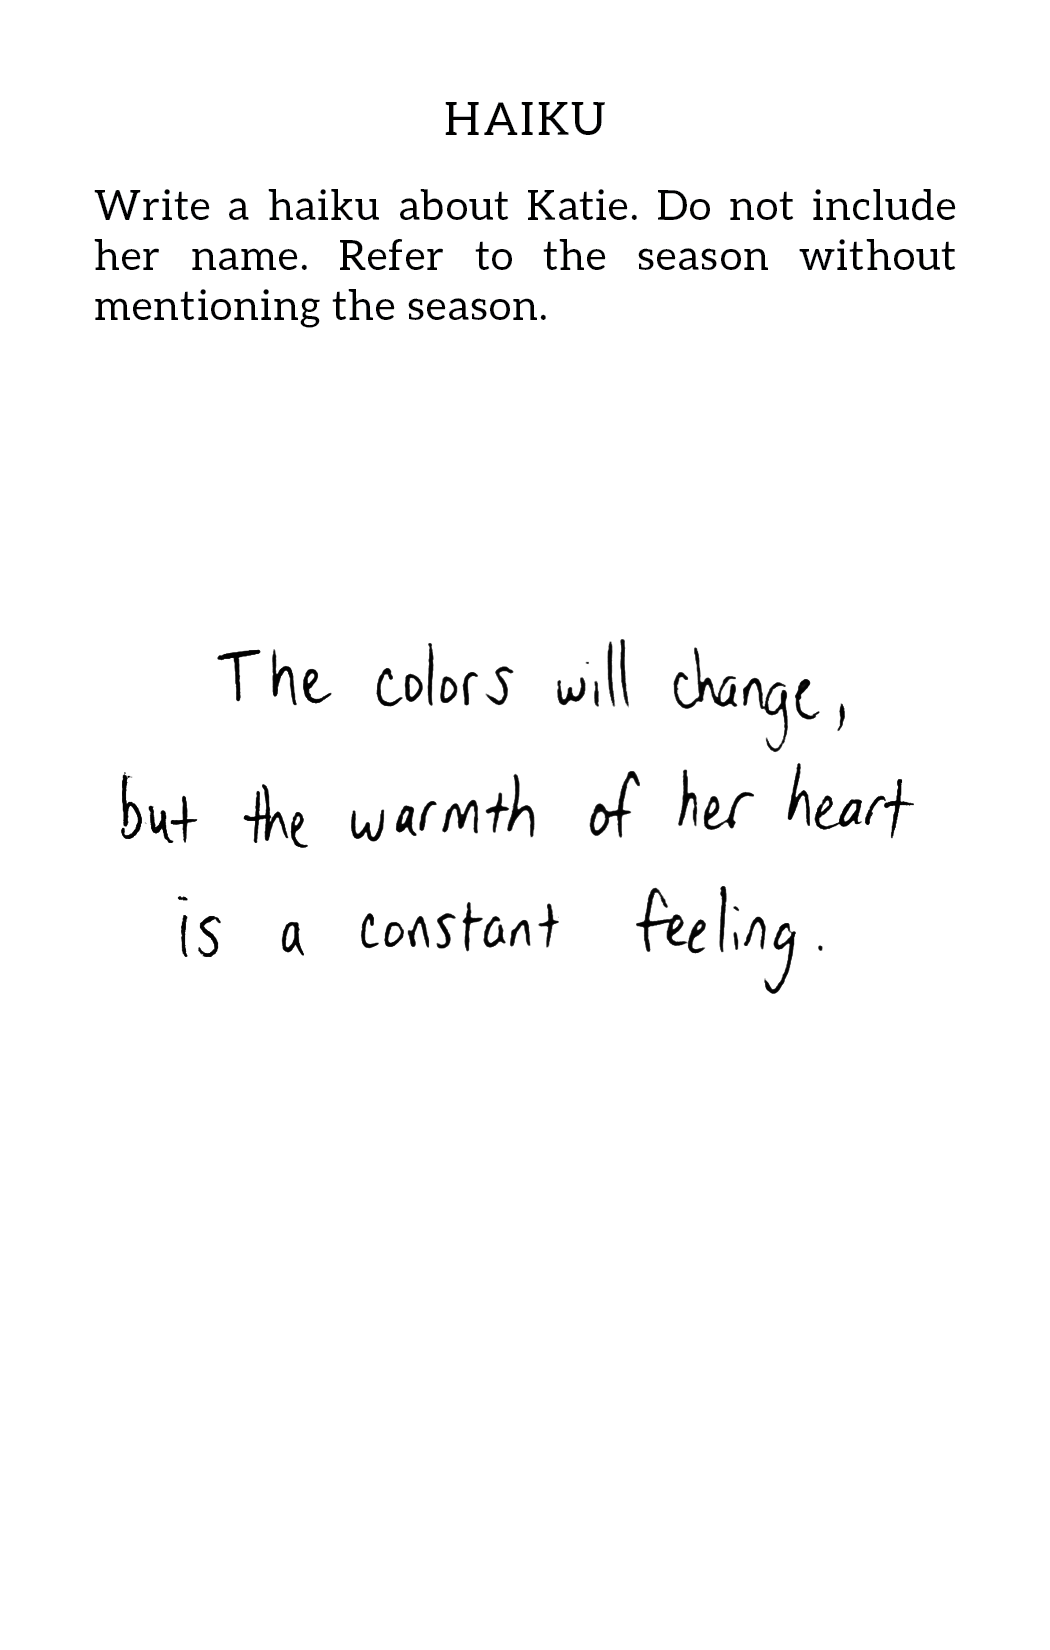 HAIKU
Write a haiku about Katie. Do not include
her name. Refer to the season without
mentioning the season.
The colors will change,
but the warmth of her heart
is a constant feeling.